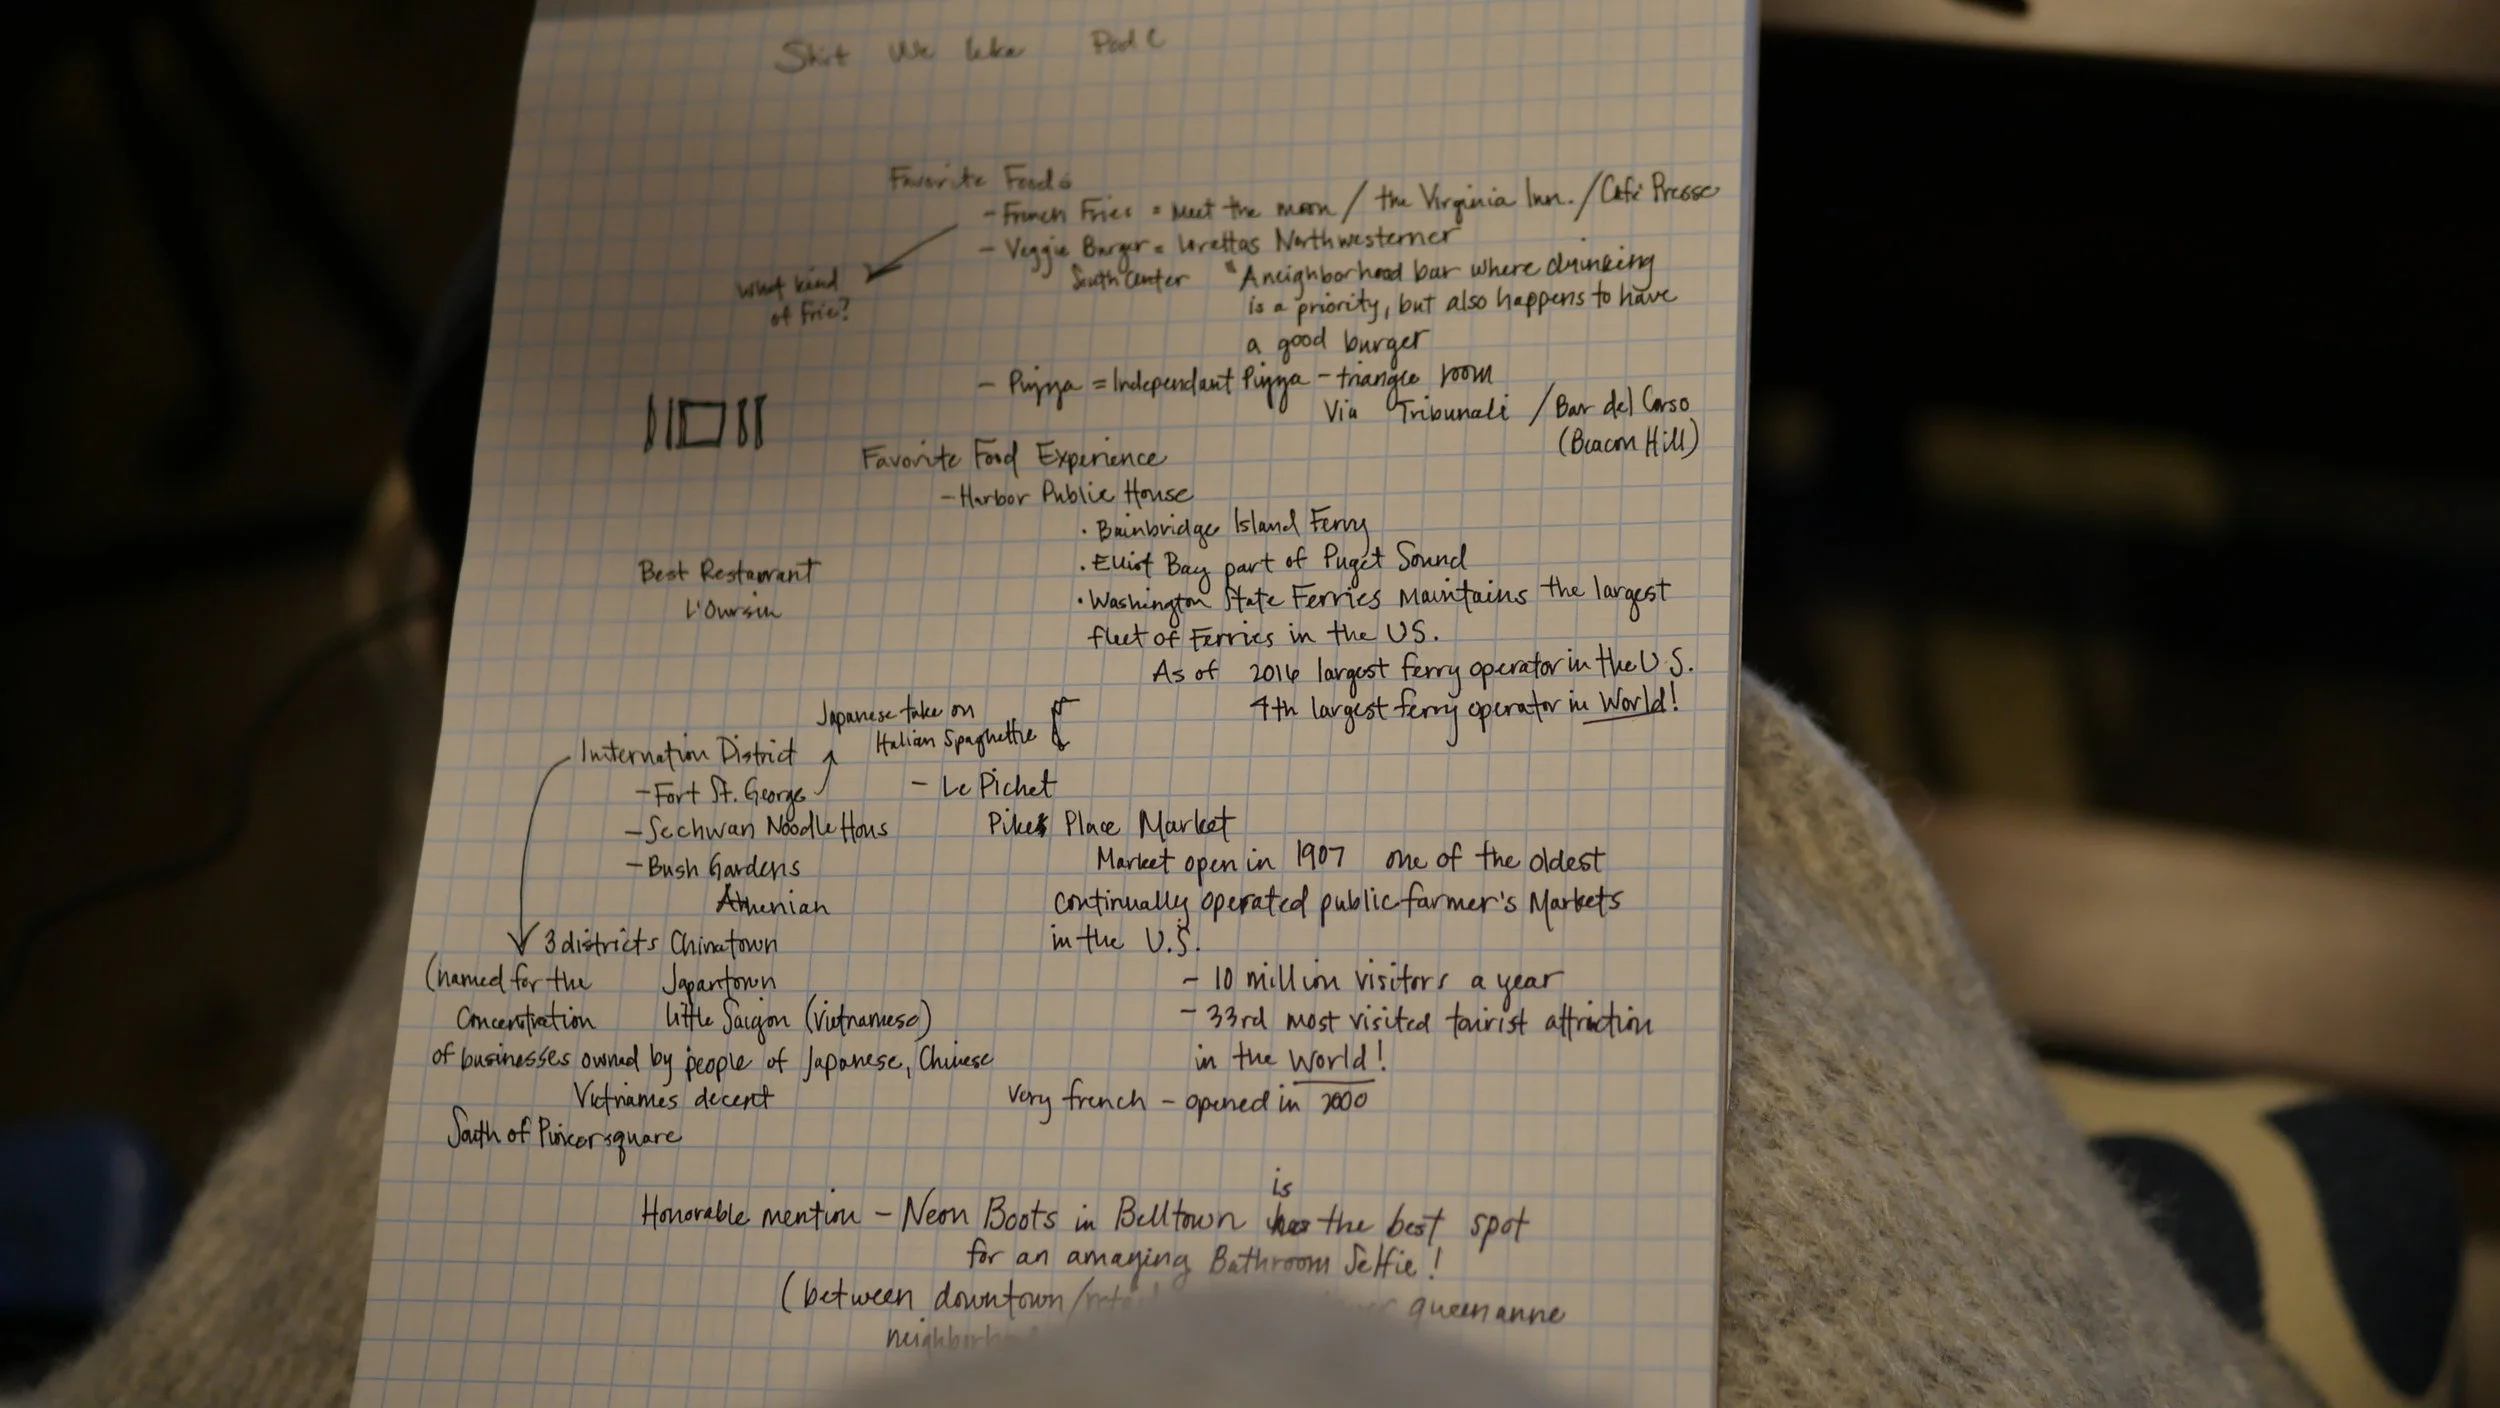 Shit We like Pod C
Favorite Foods
- French Fries = Meet the moon / the Virginia Inn. / Café Presse
- Veggie Burger = Lorettas Northwesterner
South Center "A neighborhood bar where drinking
is a priority, but also happens to have
a good burger
what kind
of Frie?
- Pizza = Independant Pizza - triangle room
Via Tribunali / Bar del Corso
(Beacon Hill)
Favorite Food Experience
- Harbor Public House
· Bainbridge Island Ferry
· Elliot Bay part of Puget Sound
· Washington State Ferries Maintains the largest
fleet of Ferries in the US.
As of 2016 largest ferry operator in the U.S.
4th largest ferry operator in World!
Best Restaurant
L'Oursin
Japanese take on
Italian Spaghettie
Internation District
- Fort St. George
- Sechwan Noodle Hous
- Bush Gardens
Athenian
3 districts Chinatown
(named for the Japantown
Concentration Little Saigon (Vietnamese)
of businesses owned by people of Japanese, Chinese
Vietnames decent
South of
- Le Pichet
Pike Place Market
Market open in 1907 one of the oldest
continually operated public farmer's Markets
in the U.S.
- 10 million visitors a year
- 33rd most visited tourist attraction
in the World!
Very french - opened in 2000
Honorable mention - Neon Boots in Belltown is the best spot
for an amazing Bathroom Selfie!
(between downtown/ queen anne